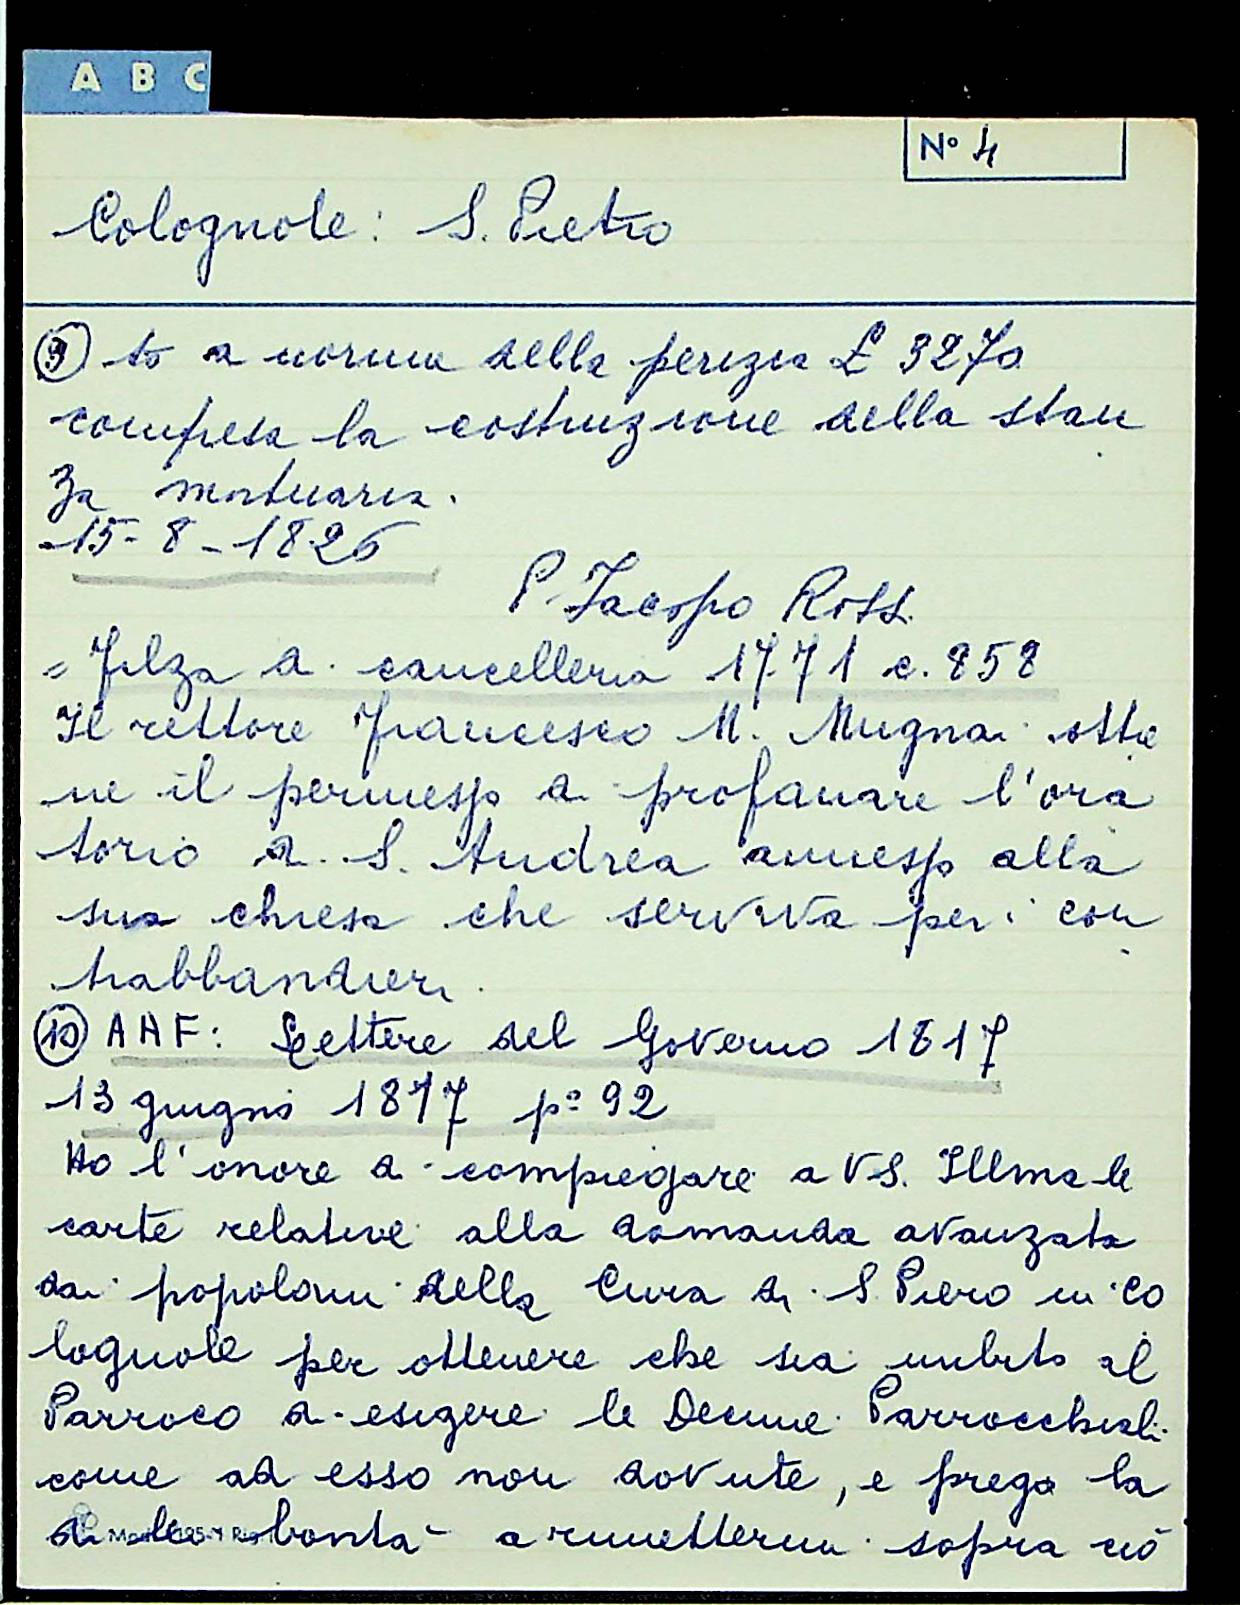 A B C
N° 4
Colognole: S. Pietro
9 to a norma della perizia £ 3270
compesa la costruzione della stan
za mortuaria.
15-8-1826
P. Jacopo Rossi
= Filza di cancelleria 1771 c. 858
Il rettore Francesco M. Mugnai otte
ne il permesso di profanare l'ora
torio di S. Andrea annesso alla
sua chiesa che serviva per i con
trabbandieri.
10 AAF: Lettere del Governo 1817
13 giugno 1817 p° 92
Ho l'onore di compiegare a VS. Illma le
carte relative alla domanda avanzata
dai popolani della Cura di S. Piero in Co
lognole per ottenere che sia inibito al
Parroco di esigere le Decime Parrocchiali
come ad esso non dovute, e prego la
di lei bontà a rimettermi sopra ciò